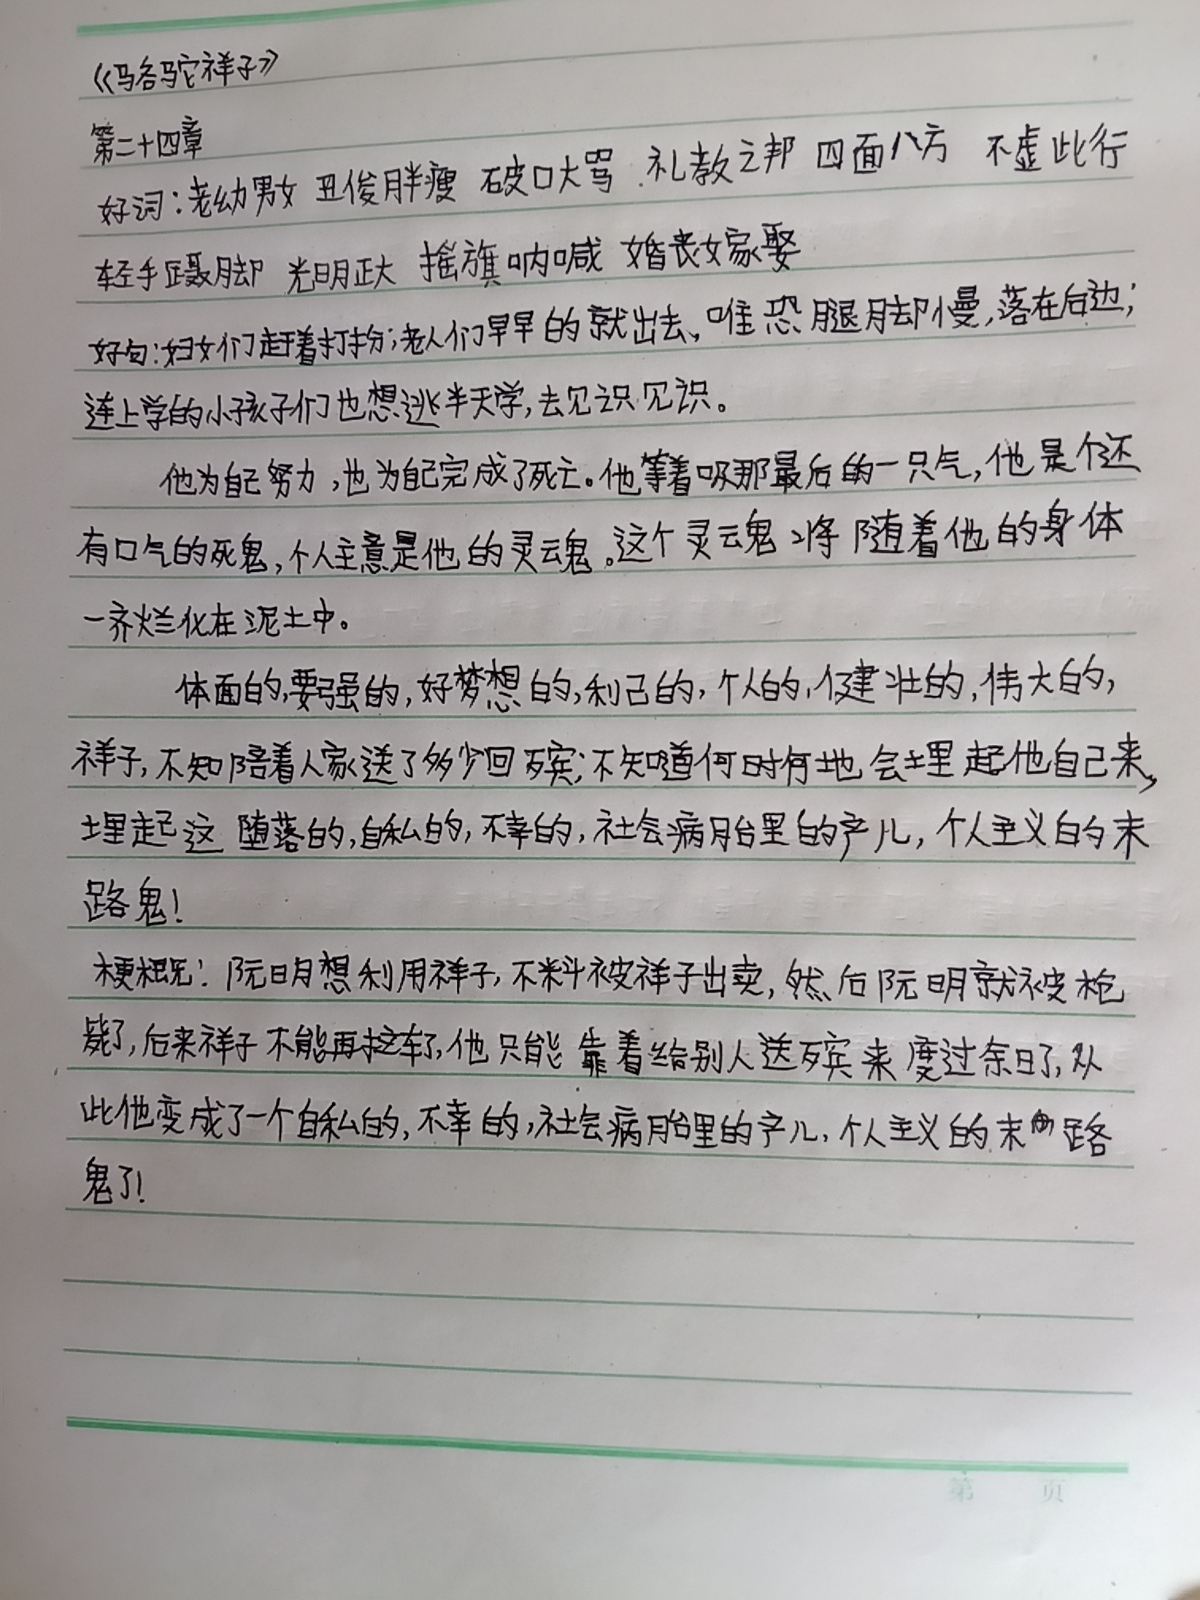 《骆驼祥子》
第二十四章
好词：老幼男女 丑俊胖瘦 破口大骂 礼教之邦 四面八方 不虚此行
轻手蹑脚 光明正大 摇旗呐喊 婚丧嫁娶
好句：妇女们赶着打扮；老人们早早的就出去、唯恐腿脚慢，落在后边；
连上学的小孩子们也想逃半天学，去见识见识。
他为自己努力，也为自己完成了死亡。他等着吸那最后的一只气，他是个还
有口气的死鬼，个人主意是他的灵魂。这个灵魂将随着他的身体
一齐烂化在泥土中。
体面的，要强的，好梦想的，利己的，个人的，健壮的，伟大的，
祥子，不知陪着人家送了多少回殡；不知道何时何地会埋起他自己来，
埋起这堕落的，自私的，不幸的，社会病胎里的产儿，个人主义的末
路鬼！
梗概：阮明想利用祥子，不料被祥子出卖，然后阮明就被枪
毙了，后来祥子不能再拉车了，他只能靠着给别人送殡来度过余日了，从
此他变成了一个自私的，不幸的，社会病胎里的产儿，个人主义的末路
鬼了！
第 页